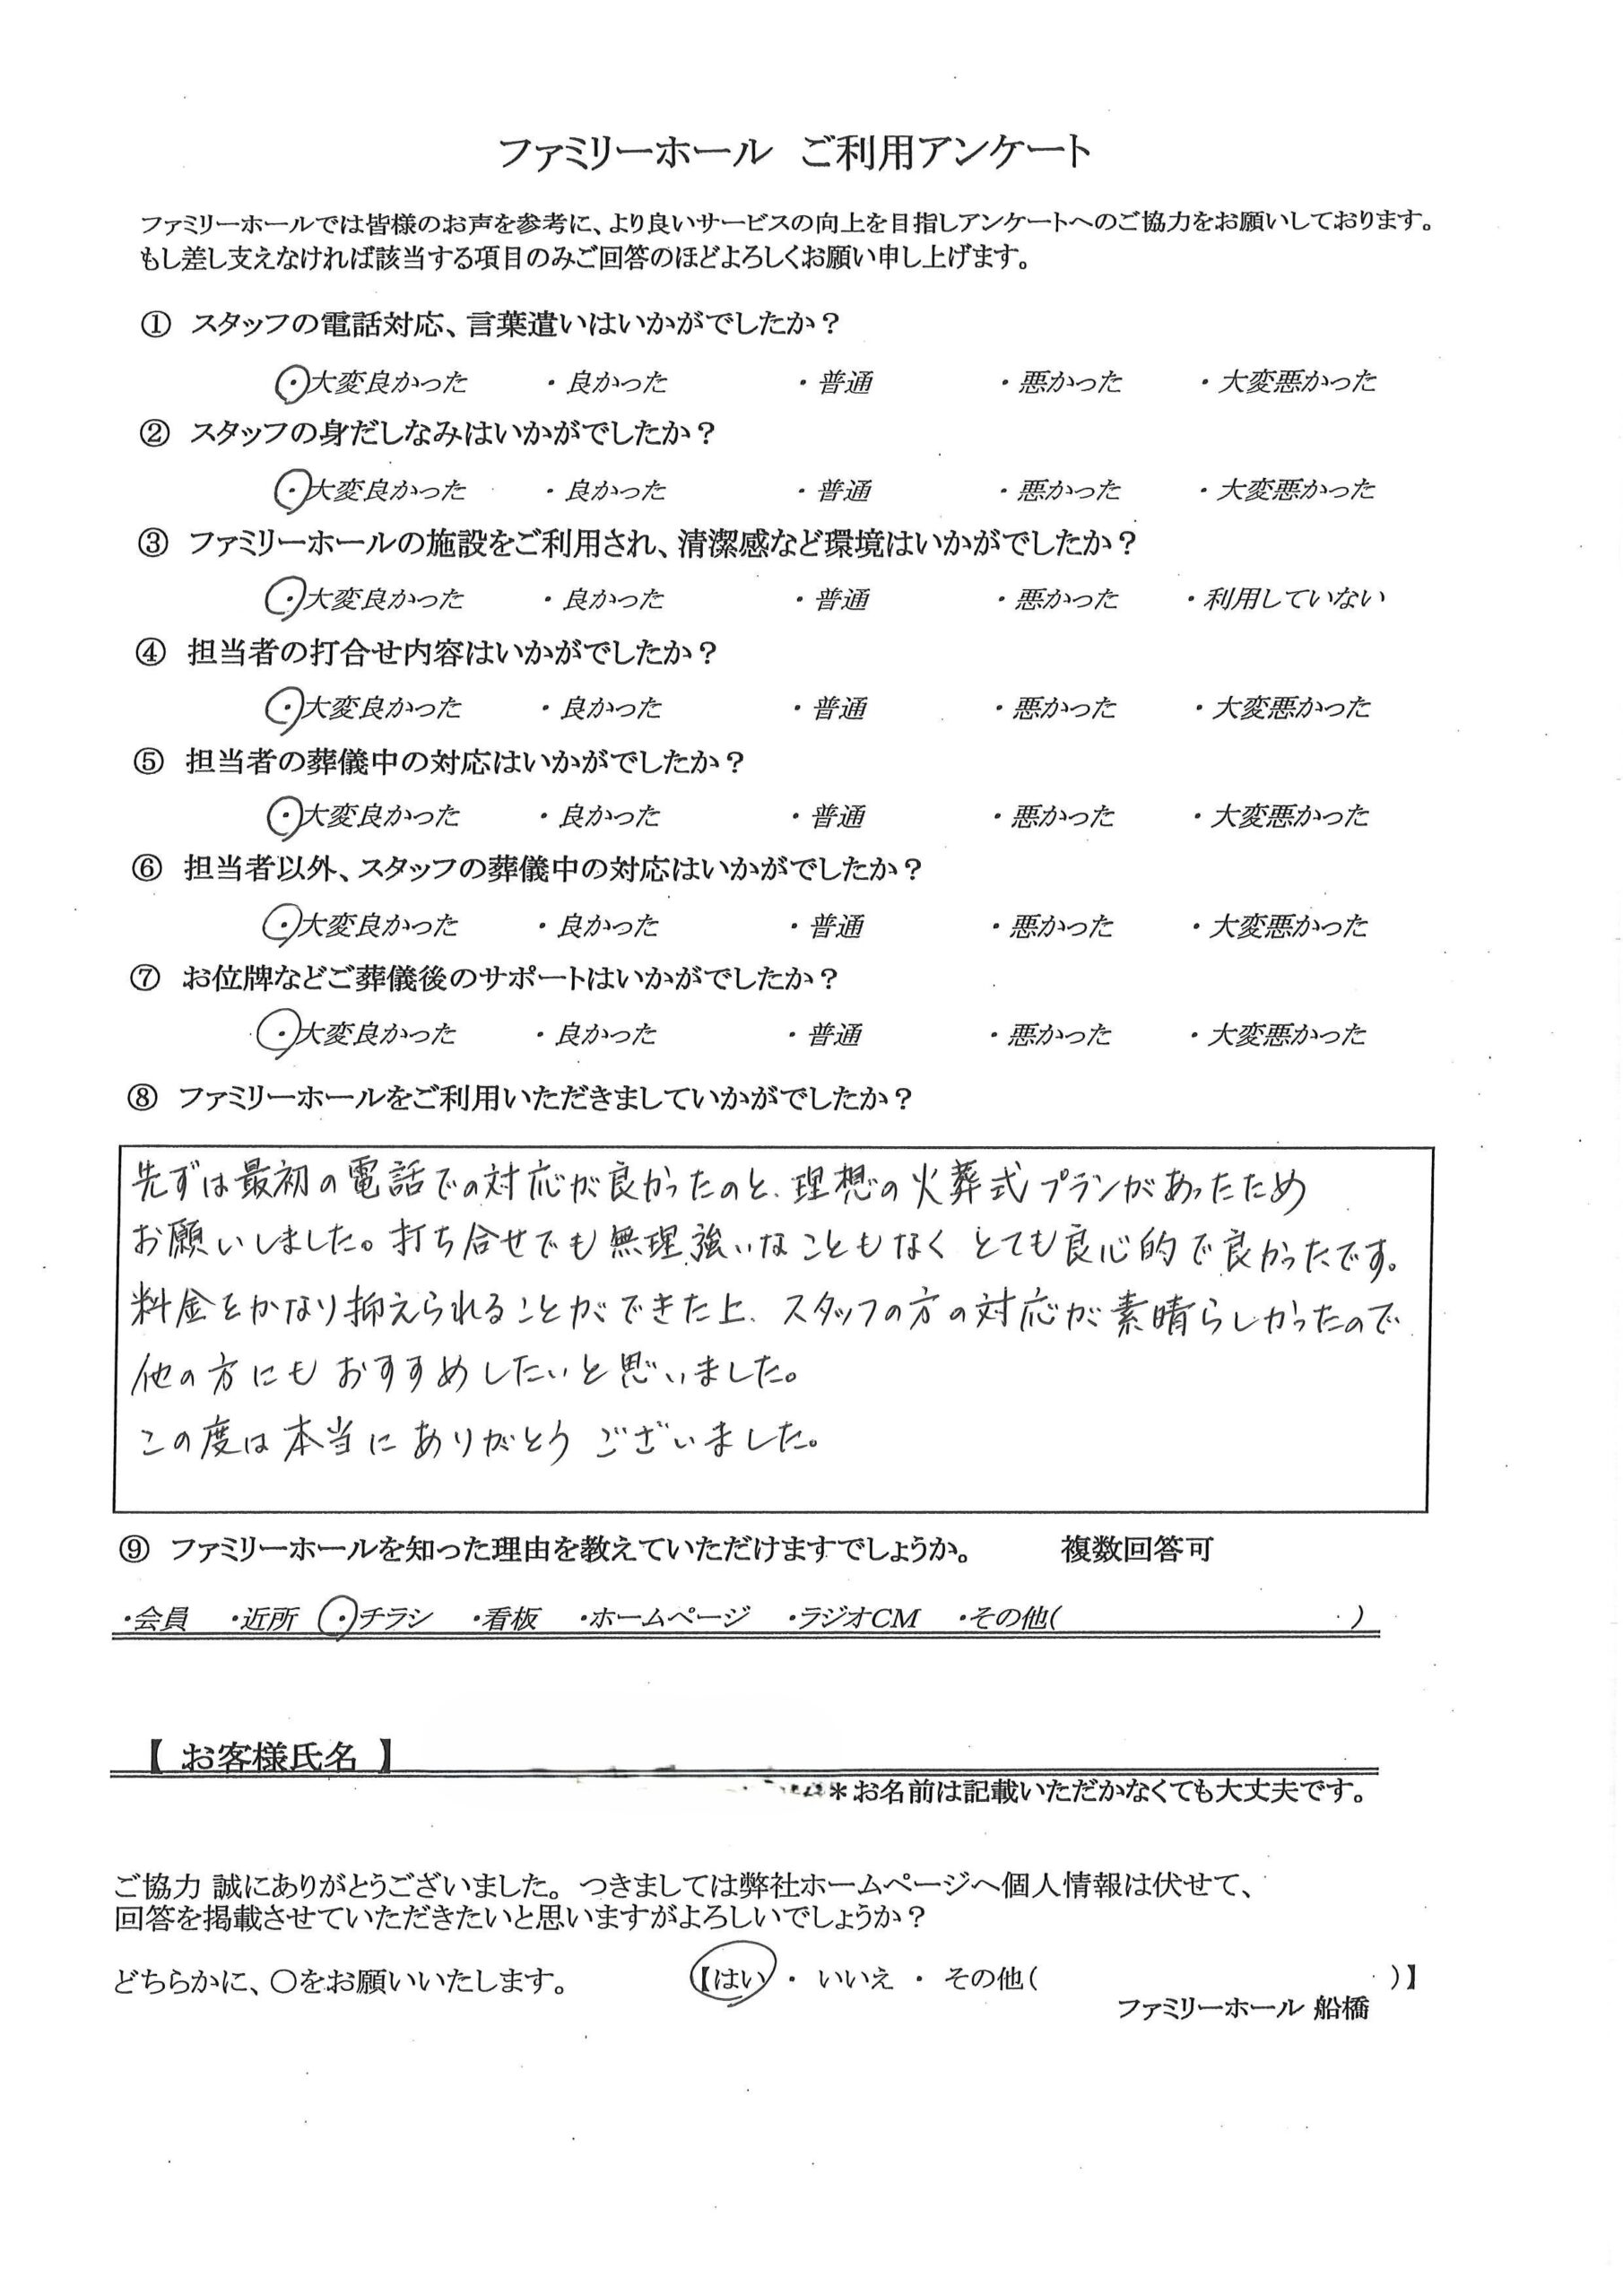 ファミリーホール ご利用アンケート
ファミリーホールでは皆様のお声を参考に、より良いサービスの向上を目指しアンケートへのご協力をお願いしております。
もし差し支えなければ該当する項目のみご回答のほどよろしくお願い申し上げます。
① スタッフの電話対応、言葉遣いはいかがでしたか？
・大変良かった ・良かった ・普通 ・悪かった ・大変悪かった
② スタッフの身だしなみはいかがでしたか？
・大変良かった ・良かった ・普通 ・悪かった ・大変悪かった
③ ファミリーホールの施設をご利用され、清潔感など環境はいかがでしたか？
・大変良かった ・良かった ・普通 ・悪かった ・利用していない
④ 担当者の打合せ内容はいかがでしたか？
・大変良かった ・良かった ・普通 ・悪かった ・大変悪かった
⑤ 担当者の葬儀中の対応はいかがでしたか？
・大変良かった ・良かった ・普通 ・悪かった ・大変悪かった
⑥ 担当者以外、スタッフの葬儀中の対応はいかがでしたか？
・大変良かった ・良かった ・普通 ・悪かった ・大変悪かった
⑦ お位牌などご葬儀後のサポートはいかがでしたか？
・大変良かった ・良かった ・普通 ・悪かった ・大変悪かった
⑧ ファミリーホールをご利用いただきましていかがでしたか？
先ずは最初の電話での対応が良かったのと、理想の火葬式プランがあったため
お願いしました。打ち合せでも無理強いなこともなく とても良心的で良かったです。
料金をかなり抑えられることができた上、スタッフの方の対応が素晴らしかったので
他の方にもおすすめしたいと思いました。
この度は本当にありがとうございました。
⑨ ファミリーホールを知った理由を教えていただけますでしょうか。 複数回答可
・会員 ・近所 ・チラシ ・看板 ・ホームページ ・ラジオCM ・その他( )
【 お客様氏名 】
＊お名前は記載いただかなくても大丈夫です。
ご協力 誠にありがとうございました。つきましては弊社ホームページへ個人情報は伏せて、
回答を掲載させていただきたいと思いますがよろしいでしょうか？
どちらかに、〇をお願いいたします。 【はい ・ いいえ ・ その他( )】
ファミリーホール 船橋